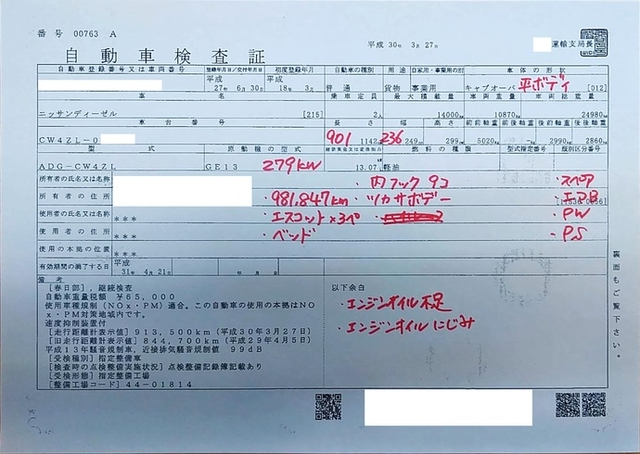 番号 00763 A
平成 30年 3月 27日
運輸支局長
自動車検査証
自動車登録番号又は車両番号 登録年月日/交付年月日 初度登録年月 自動車の種別 用途 自家用・事業用の別 車体の形状
平成 27年 6月 30日 平成 18年 3月 普通 貨物 事業用 キャブオーバ 平ボディ [012]
車名 乗車定員 最大積載量 車両重量 車両総重量
ニッサンディーゼル [215] 2人 14000 10870 24980
車台番号 長さ 幅 高さ 前前軸重 前後軸重 後前軸重 後後軸重
CW4ZL-0 901 1142 236 249 299 5020 - 2990 2860
型式 原動機の型式 燃料の種類 型式指定番号 類別区分番号
ADG-CW4ZL GE13 279kw 13.07 軽油
所有者の氏名又は名称
・内フック 9コ
・スペア
所有者の住所
・981,847km
・ツカサボデー
・エアB
使用者の氏名又は名称 ***
・エスコット×3ペ
・PW
使用者の住所 ***
・ベッド
・PS
使用の本拠の位置 ***
有効期間の満了する日 平成 31年 4月 21日 年 月 日
裏面もご覧下さい。
備考
[春日部],継続検査
自動車重量税額 ¥65,000
使用車種規制(NOx・PM)適合。この自動車の使用の本拠はNOx・PM対策地域内です。
速度抑制装置付
[走行距離計表示値] 913,500km(平成30年3月27日)
[旧走行距離計表示値] 844,700km(平成29年4月5日)
平成13年騒音規制車、近接排気騒音規制値 99dB
[受検種別]指定整備車
[検査時の点検整備実施状況]点検整備記録簿記載あり
[受検形態]指定整備工場
[整備工場コード]44-01814
以下余白
・エンジンオイル不足
・エンジンオイルにじみ